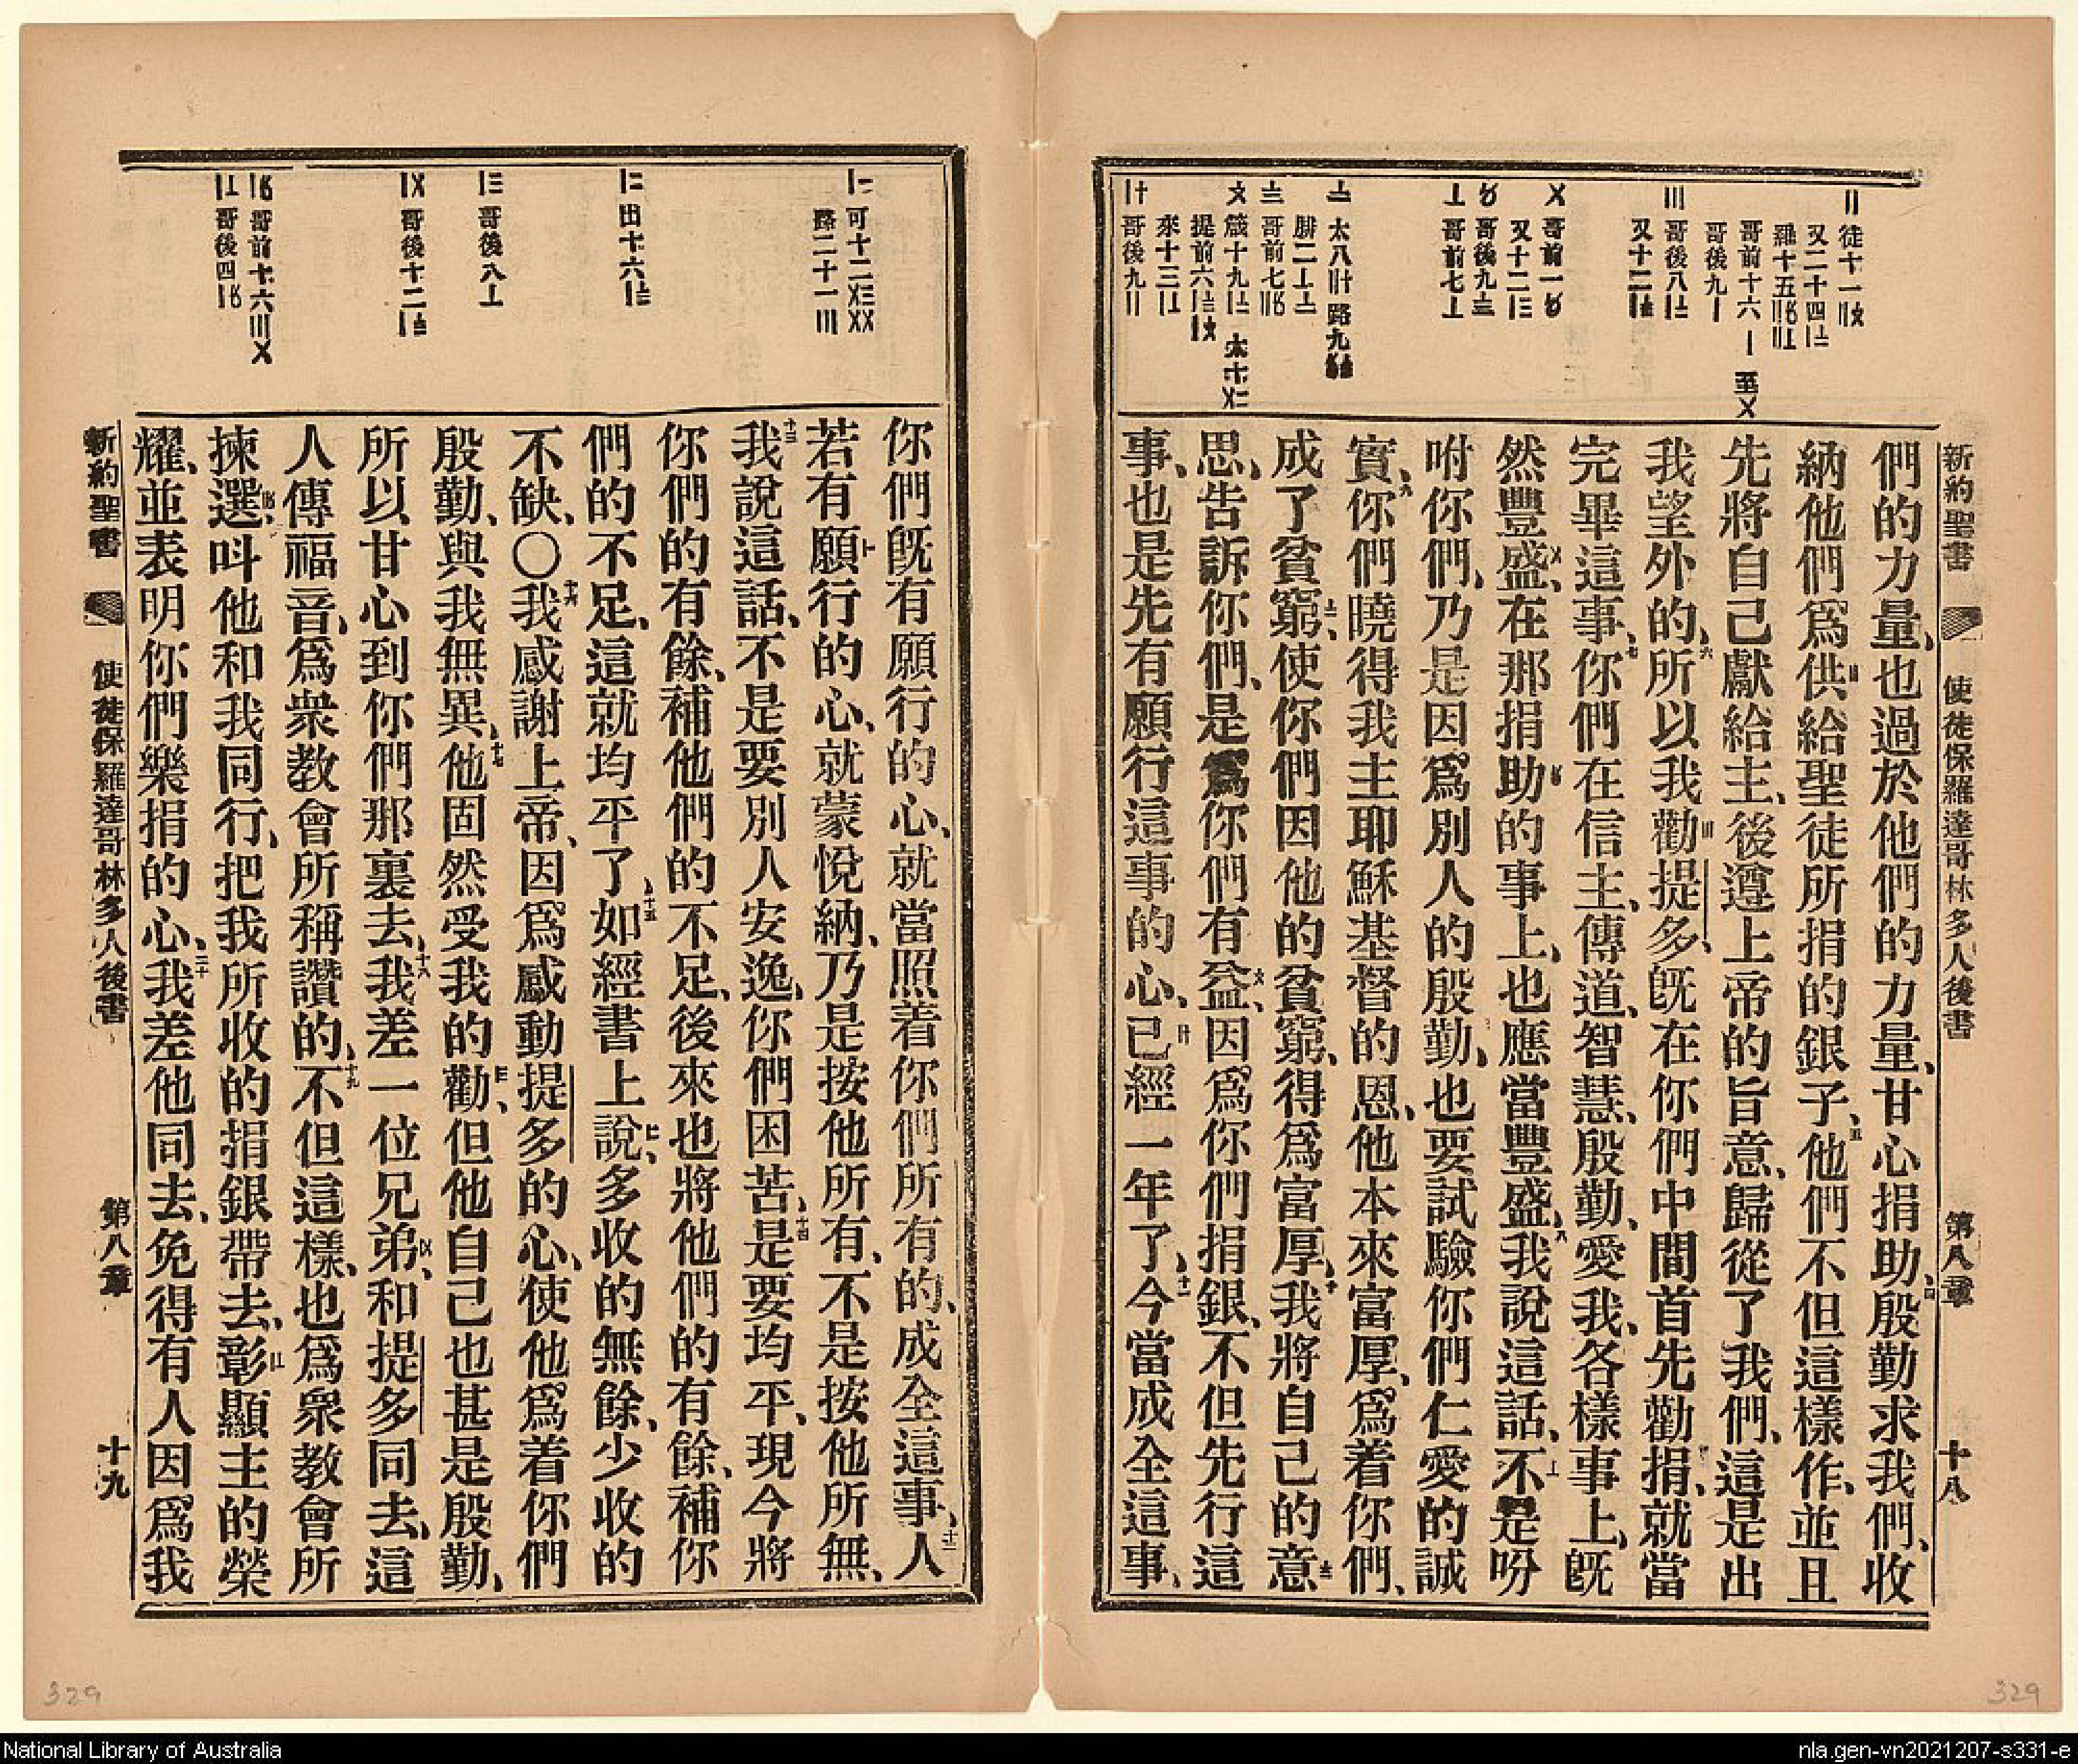 新約聖書　使徒保羅達哥林多人後書　第八章　十八
〢徒十一
又二十四
羅十五
哥前十六〡至〤
哥後九〡
〣哥後八
又十二
〤哥前一
又十二
哥後九
哥前七
太八　路九
腓二
哥前七
箴十九　太十
提前六
來十三
哥後九〢
們的力量、也過於他們的力量、甘心捐助、四殷勤求我們、收
納他們爲供給聖徒所捐的銀子、五他們不但這樣作、並且
先將自己獻給主、後遵上帝的旨意、歸從了我們、這是出
我望外的、六所以我勸提多、旣在你們中間首先勸捐、就當
完畢這事、七你們在信主、傳道、智慧、殷勤、愛我、各樣事上、旣
然豐盛、在那捐助的事上、也應當豐盛、八我說這話、不是吩
咐你們、乃是因爲別人的殷勤、也要試驗你們仁愛的誠
實、九你們曉得我主耶穌基督的恩、他本來富厚、爲着你們、
成了貧窮、使你們因他的貧窮、得爲富厚、十我將自己的意
思、告訴你們、是爲你們有益、因爲你們捐銀、不但先行這
事、也是先有願行這事的心、已經一年了、十一今當成全這事、
可十二
路二十一
出十六
哥後八
哥後十二
哥前十六
哥後四
你們旣有願行的心、就當照着你們所有的、成全這事、十二人
若有願行的心、就蒙悅納、乃是按他所有、不是按他所無、
十三我說這話、不是要別人安逸、你們困苦、十四是要均平、現今將
你們的有餘、補他們的不足、後來也將他們的有餘、補你
們的不足、這就均平了、十五如經書上說、多收的無餘、少收的
不缺、〇十六我感謝上帝、因爲感動提多的心、使他爲着你們
殷勤、與我無異、十七他固然受我的勸、但他自己也甚是殷勤、
所以甘心到你們那裏去、十八我差一位兄弟、和提多同去、這
人傳福音、爲衆教會所稱讚的、十九不但這樣、也爲衆教會所
揀選、呌他和我同行、把我所收的捐銀帶去、彰顯主的榮
耀、並表明你們樂捐的心、二十我差他同去、免得有人因爲我
新約聖書　使徒保羅達哥林多人後書　第八章　十九
329
329
National Library of Australia
nla.gen-vn2021207-s331-e